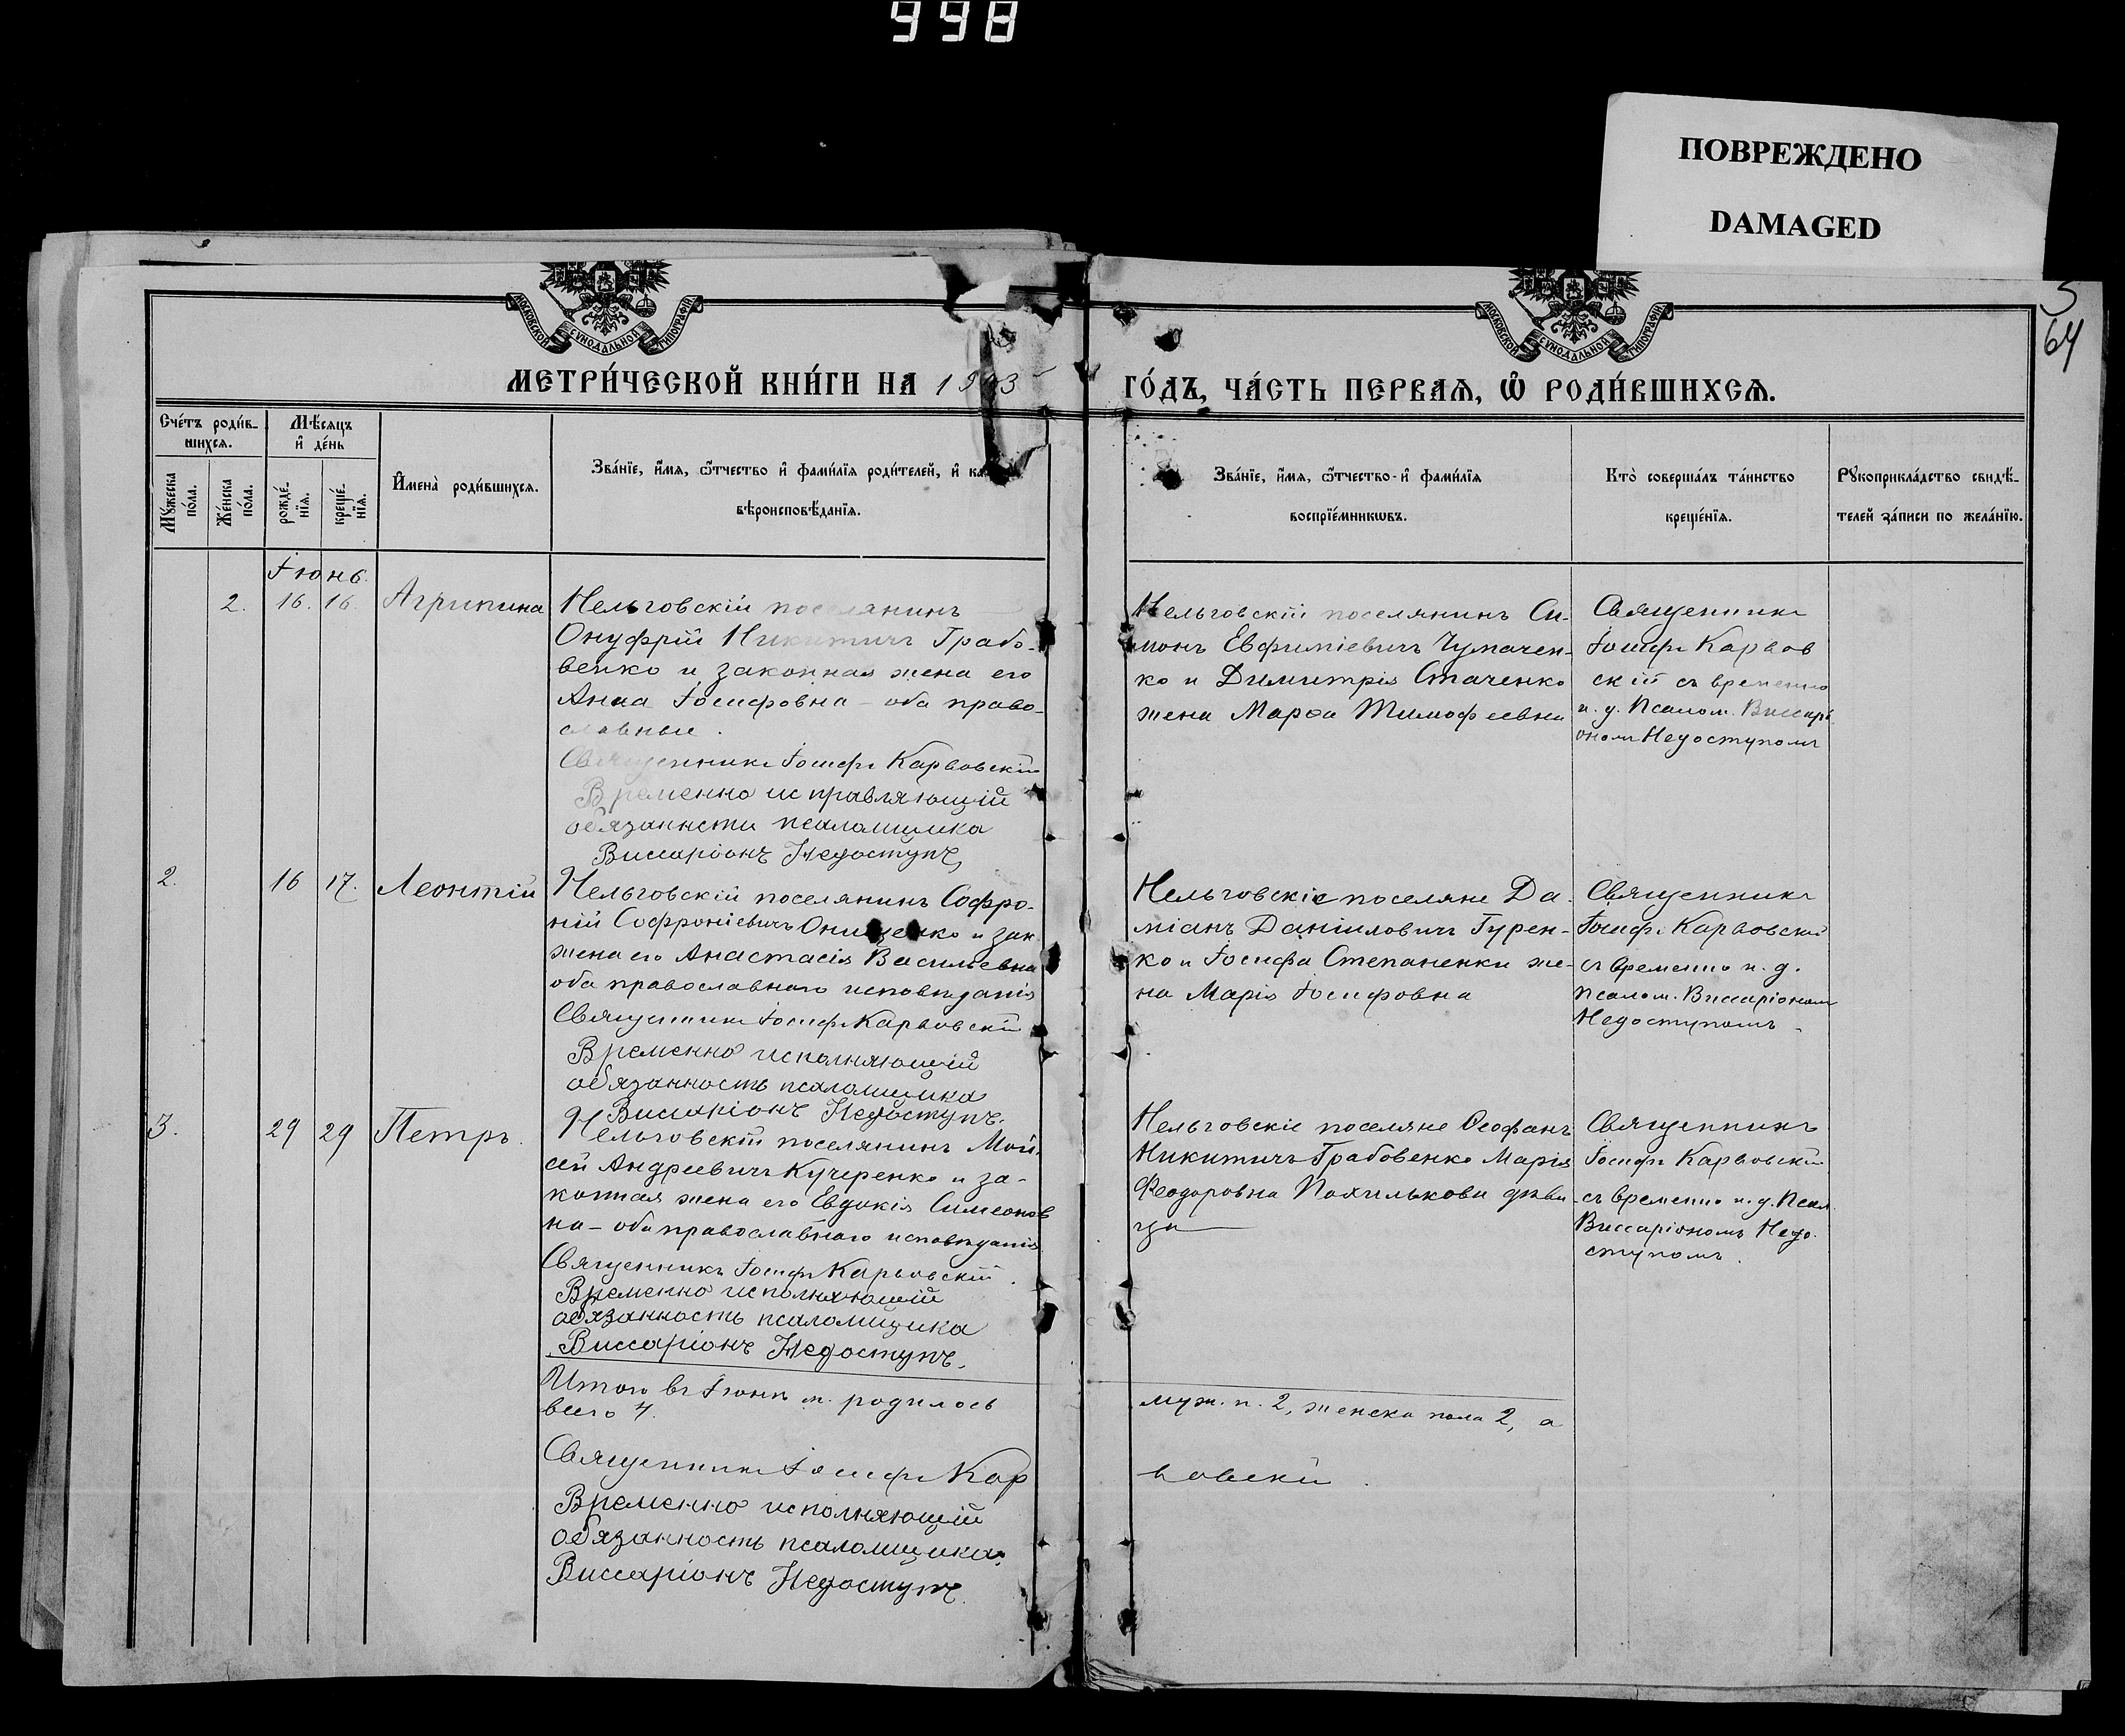 998
ПОВРЕЖДЕНО
DAMAGED
МОСКОВСКОЙ СУНОДАЛЬНОЙ ТИПОГРАФІИ
МОСКОВСКОЙ СУНОДАЛЬНОЙ ТИПОГРАФІИ
64
МЕТРИ́ЧЕСКОЙ КНИ́ГИ НА 19 3
ГО́ДЪ, ЧА́СТЬ ПЕРВАѦ, Ѡ҆ РОДИ́ВШИХСѦ.
Сче́тъ роди́в-
шихсѧ.
Мѣ́сѧцъ
и҆ де́нь
Мꙋ́жеска по́ла.
Же́нска по́ла.
рожде́-нїѧ.
креще́-нїѧ.
И҆мена̀ роди́вшихсѧ.
Зва́нїе, и҆́мѧ, ѻ҆́тчество и҆ фами́лїѧ роди́телей, и҆
вѣроисповѣ́данїѧ.
Зва́нїе, и҆́мѧ, ѻ҆́тчество и҆ фами́лїѧ
воспрїе́мникѡвъ.
Кто̀ соверша́лъ та́инство
креще́нїѧ.
Рꙋкоприкла́дство свидѣ́-
телей за́писи по жела́нїю.
Іюнь.
2. 16. 16. Агрипина
Нельговскій поселянинъ
Онуфрій Никитичъ Грабо-
венко и законная жена его
Анна Іосифовна - оба право-
славные.
Священникъ Іосифъ Карвовскій
Временно исправляющій
обязаннсти псаломщика
Виссаріонъ Недоступъ
Нельговскій поселянинъ Си-
монъ Евфиміевичъ Чумачен-
ко и Димитрія Стаченко
жена Марѳа Тимофеевна
Священникъ
Іосифъ Карвов
скій съ временно
и. д. Псалом. Виссарі-
ономъ Недоступомъ
2. 16 17. Леонтій
Нельговскій поселянинъ Софро-
ній Софроніевичъ Онищенко и зак
жена его Анастасія Васильевна
оба православнаго исповѣданія
Священникъ Іосифъ Карвовскій
Временно исполняющій
обязанность псаломщика
Виссаріонъ Недоступъ.
Нельговскіе поселяне Да-
міанъ Даніиловичъ Гурен-
ко и Іосифа Степаненки же-
на Марія Іосифовна
Священникъ
Іосифъ Карвовскій
съ временно и. д.
Псалом. Виссаріономъ
Недоступомъ.
3. 29 29 Петръ.
Нельговскій поселянинъ Мой-
сей Андреевичъ Кучеренко и за-
конная жена его Евдокія Симеонов
на - оба православнаго исповѣданія
Священникъ Іосифъ Карвовскій.
Временно исполняющій
обязанность псаломщика
Виссаріонъ Недоступъ.
Нельговскіе поселяне Ѳеофанъ
Никитичъ Грабовенко Марія
Феодоровна Похилькова дѣви-
ца
Священникъ
Іосифъ Карвовскій
съ временно и. д. Псал.
Виссаріономъ Недо-
ступомъ.
Итого въ Іюнѣ м. родилось
муж. п. 2, женска пола 2, а
всего 4.
Священникъ Іосифъ Кар
вовскій.
Временно исполняющій
обязанность псаломщика
Виссаріонъ Недоступъ